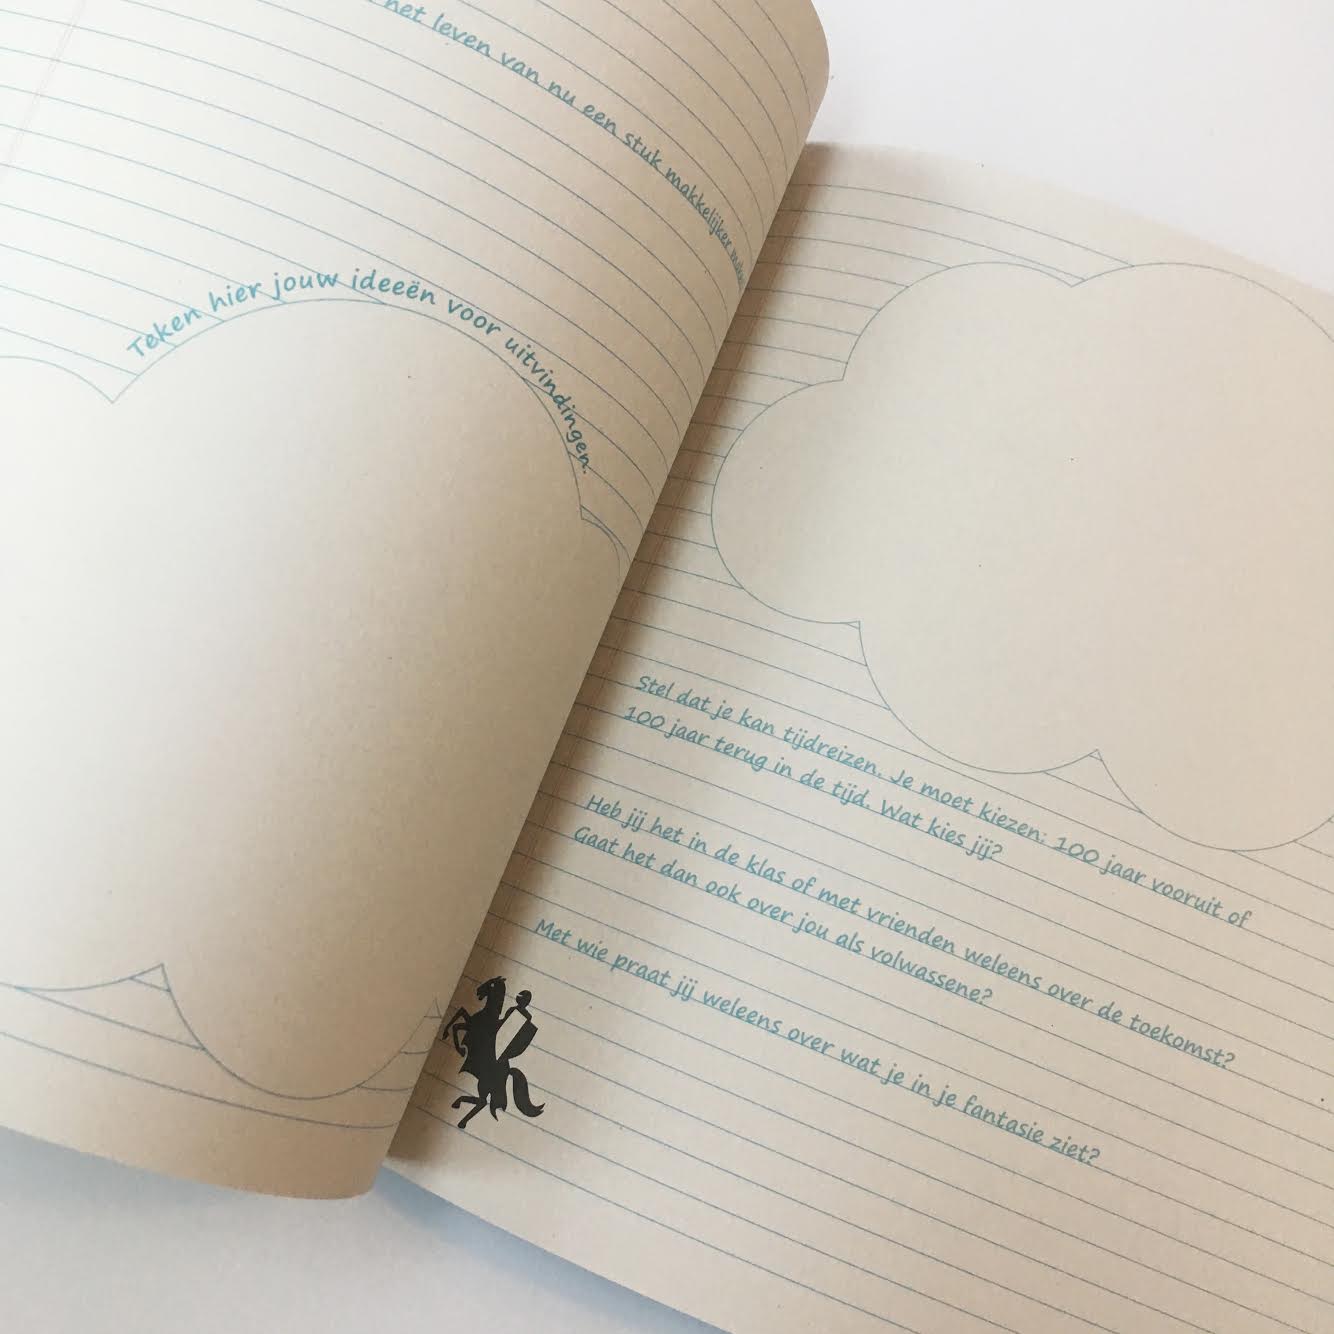 het leven van nu een stuk makkelijker maken
Teken hier jouw ideeën voor uitvindingen.
Stel dat je kan tijdreizen. Je moet kiezen: 100 jaar vooruit of
100 jaar terug in de tijd. Wat kies jij?
Heb jij het in de klas of met vrienden weleens over de toekomst?
Gaat het dan ook over jou als volwassene?
Met wie praat jij weleens over wat je in je fantasie ziet?